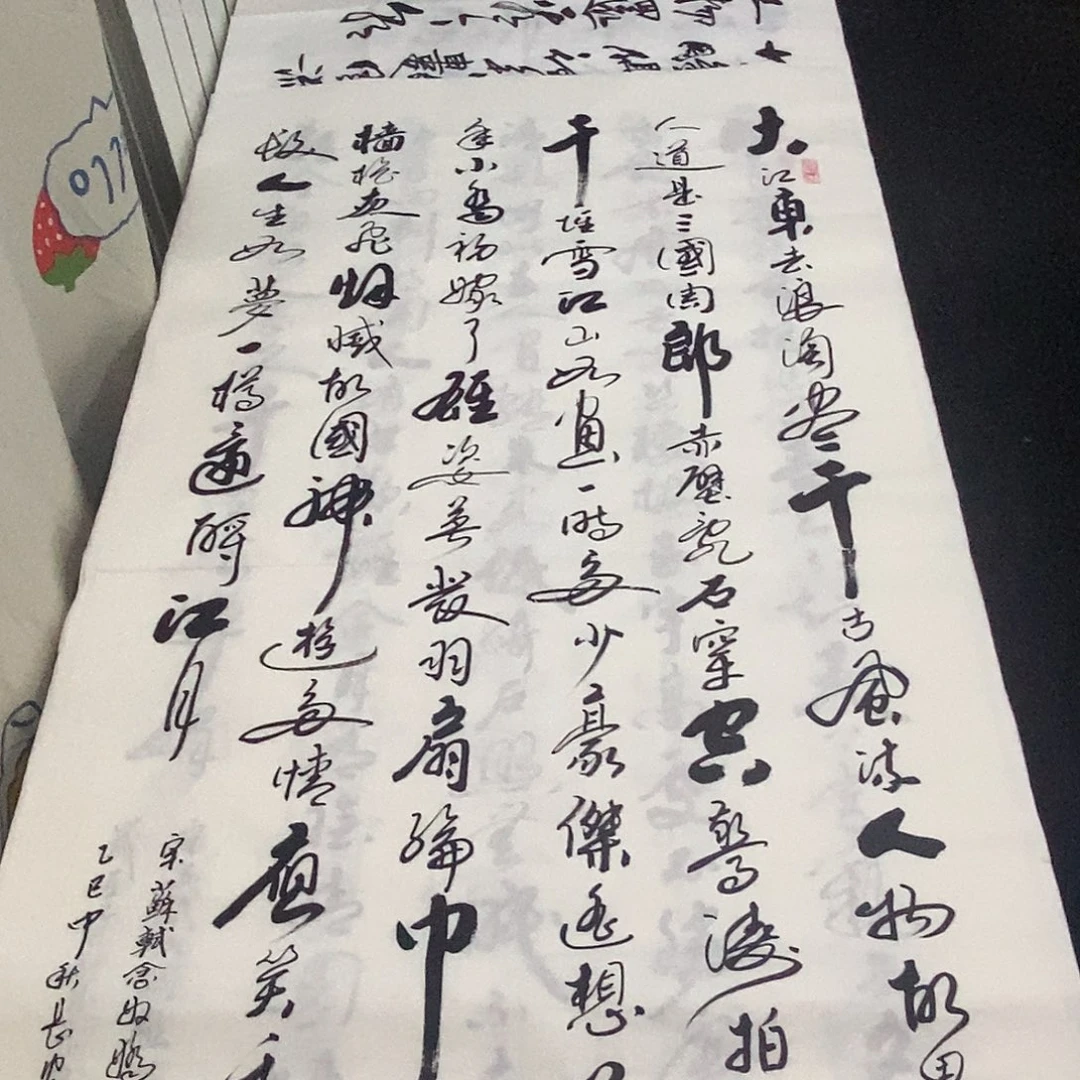 大江東去浪淘尽千古風流人物故
人道是三國周郎赤壁亂石穿空驚濤拍
千堆雪江山如畫一時多少豪傑遙想
年小喬初嫁了雄姿英發羽扇綸巾
檣櫓灰飛烟滅故國神遊多情應笑
髮人生如夢一樽還酹江月
宋蘇軾念奴嬌
乙巳中秋